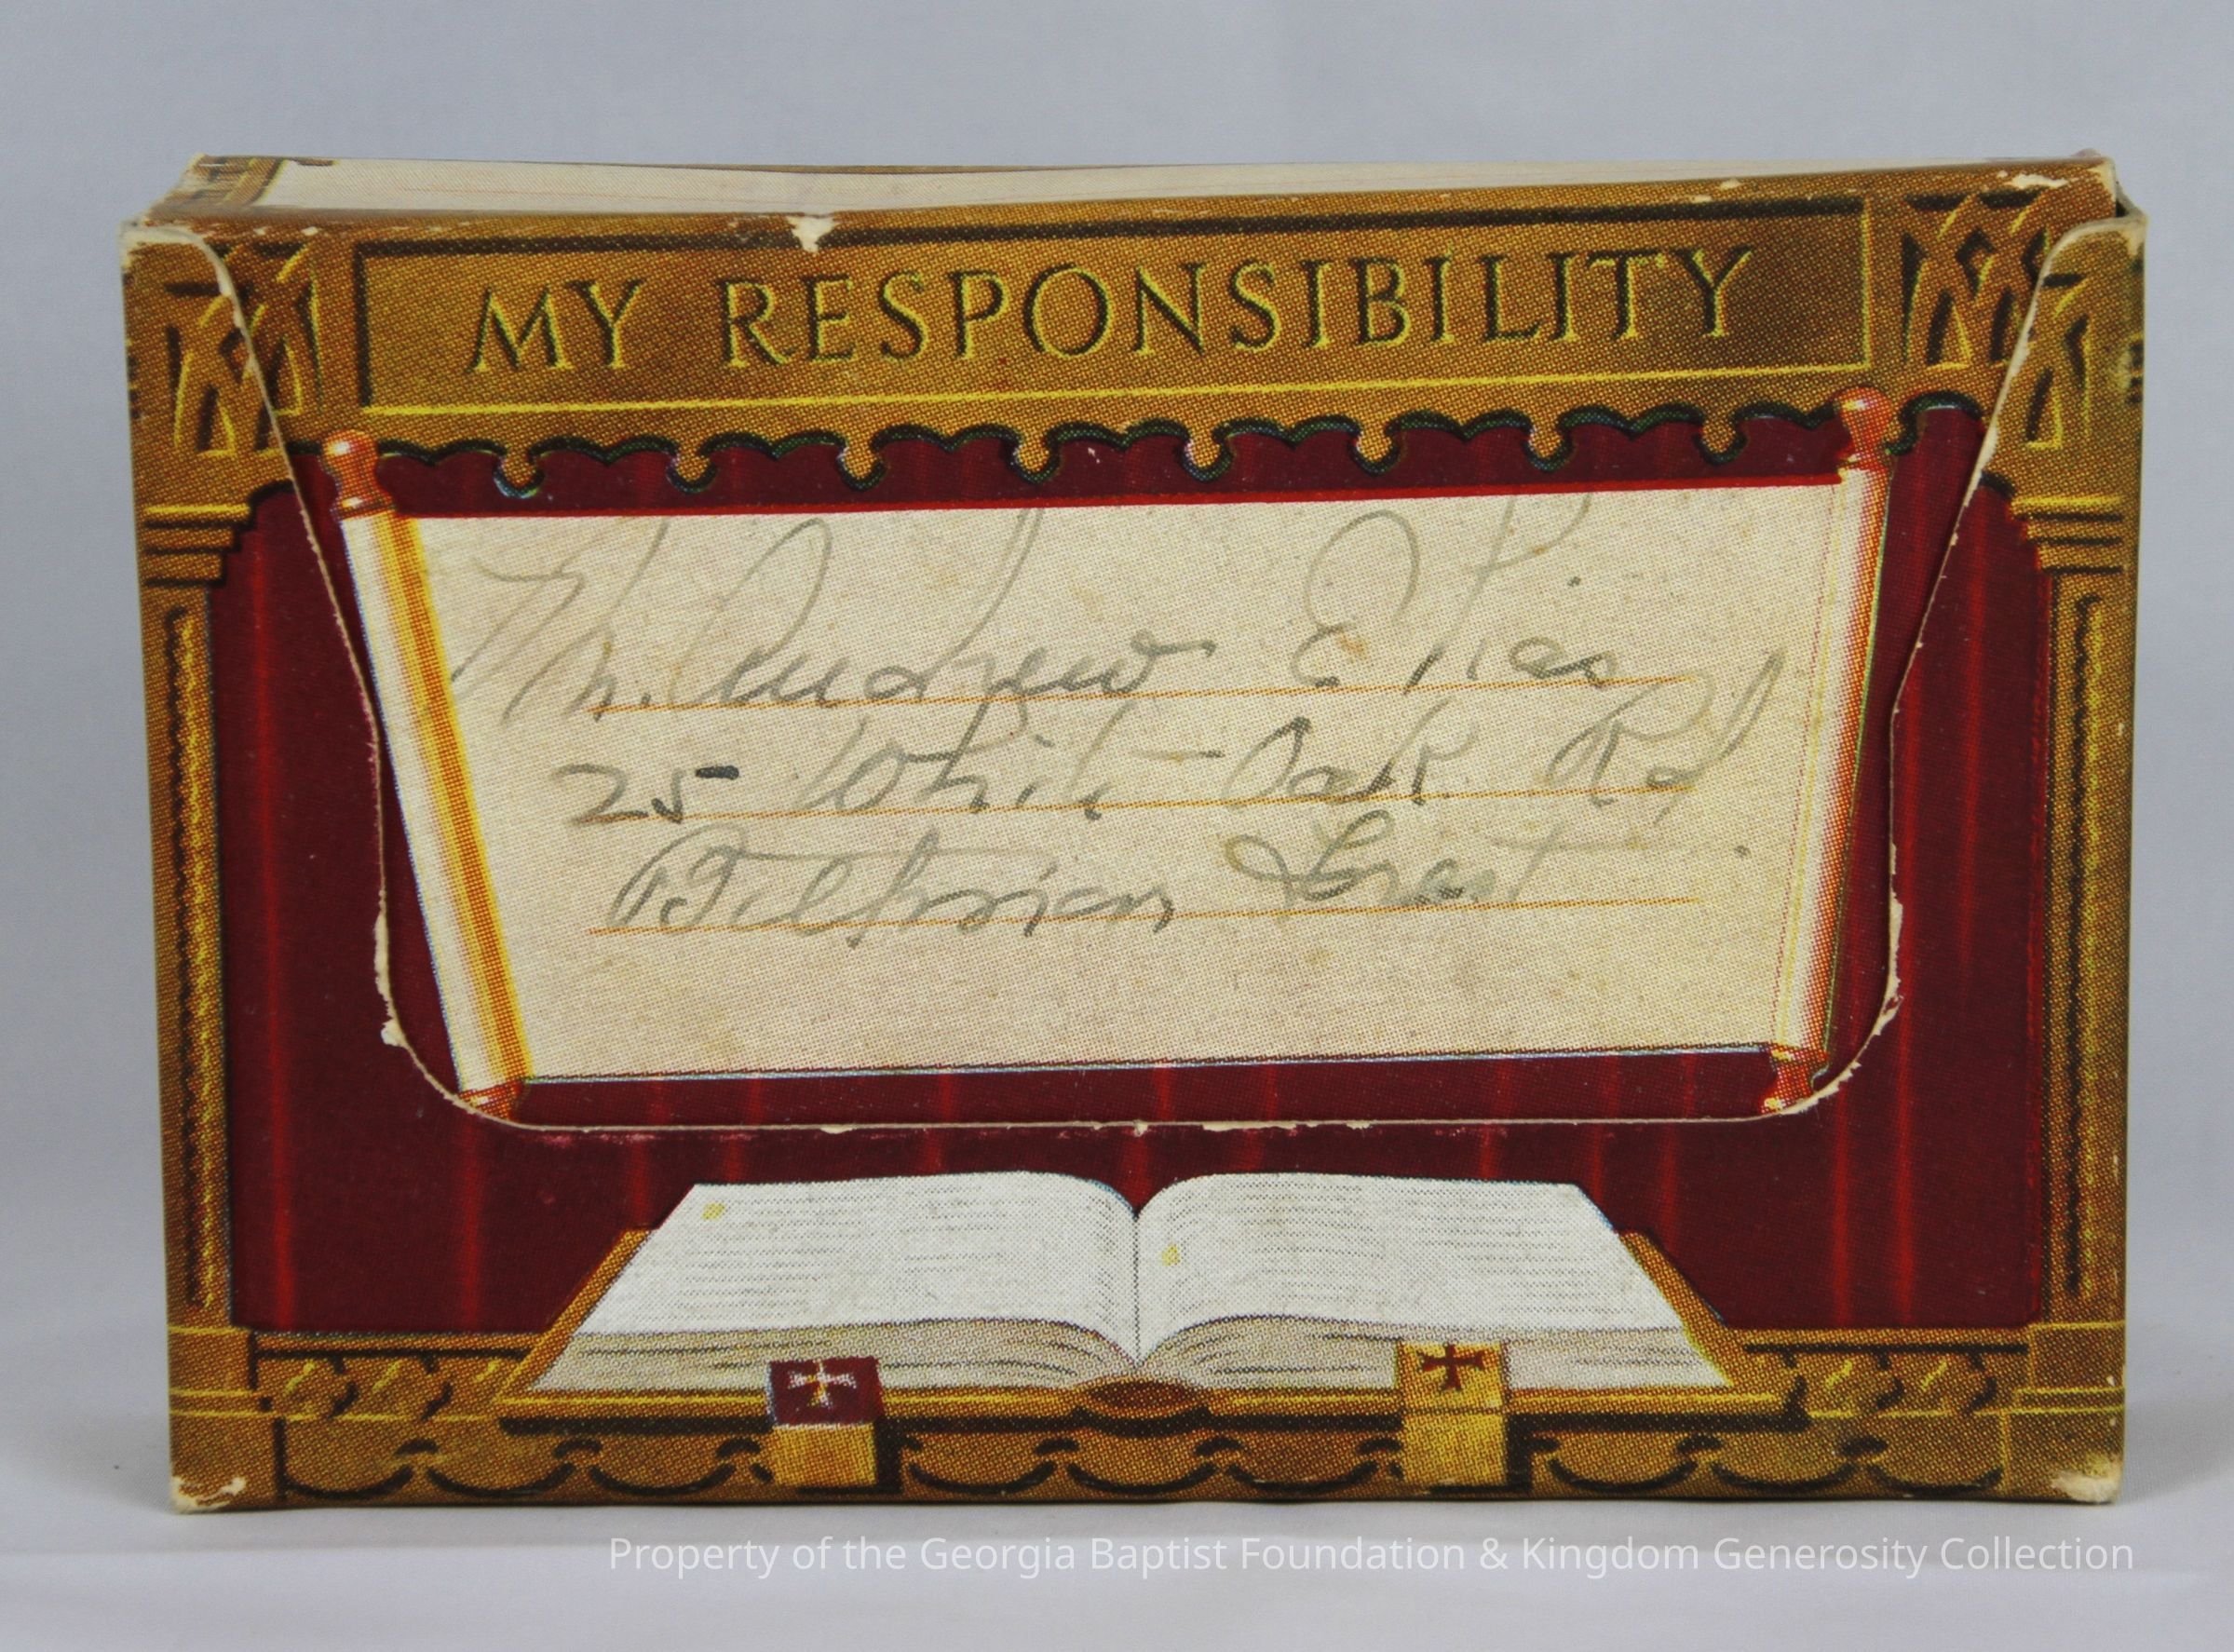 MY RESPONSIBILITY
Mr. Andrew
25 White Oak Rd
Biltmore Forest
Property of the Georgia Baptist Foundation & Kingdom Generosity Collection